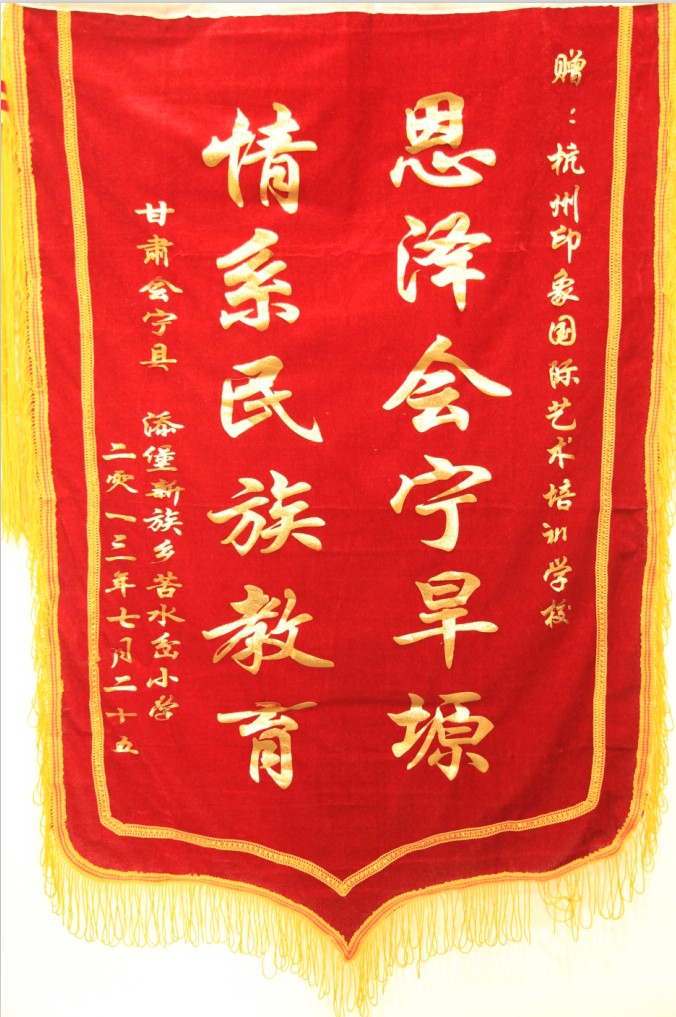 赠：杭州印象国际艺术培训学校
恩泽会宁旱塬
情系民族教育
甘肃会宁县 添堡新族乡苦水岔小学
二零一三年七月二十五